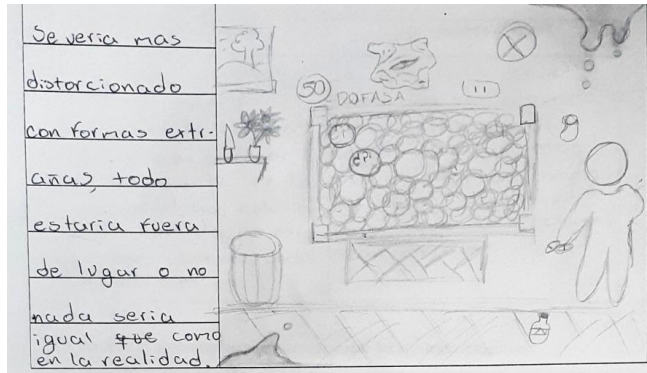 Se veria mas
distorcionado
con formas extr-
añas, todo
estaria fuera
de lugar o no
nada seria
igual que como
en la realidad.
50
DOFASA
11